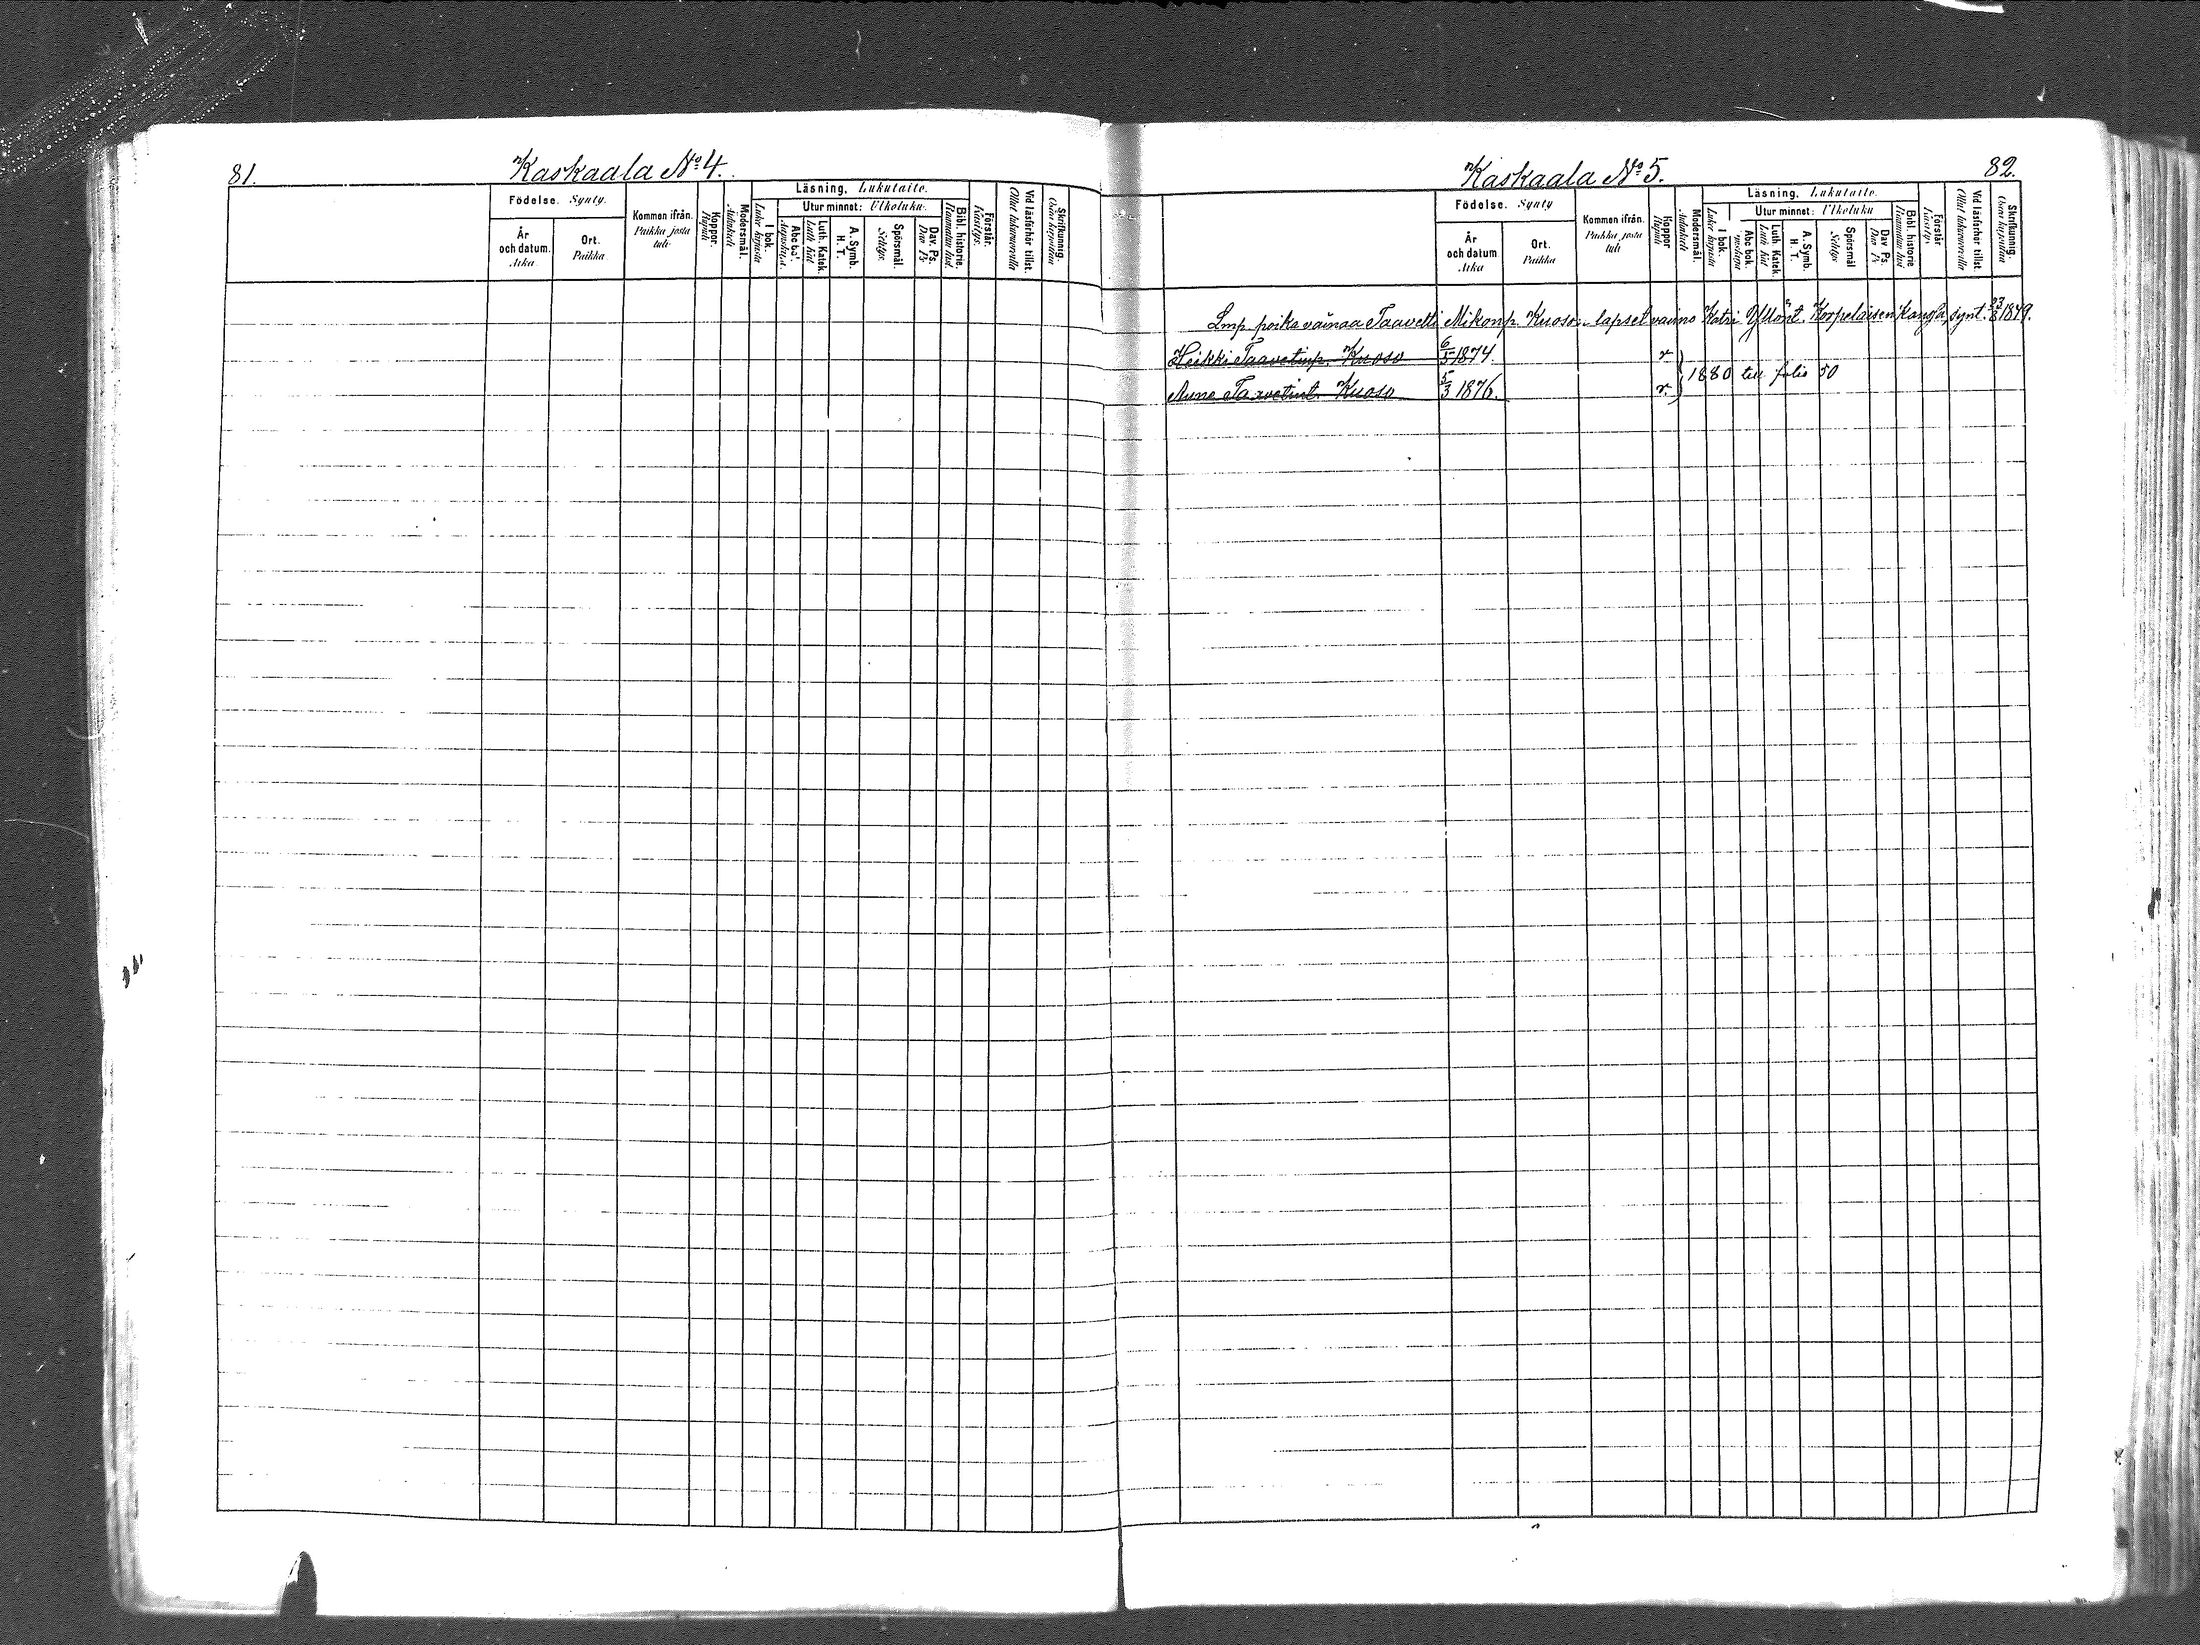 81.
Kaskaala No 4.
Födelse. Synty.
År och datum. Aika
Ort. Paikka
Kommen ifrån. Paikka josta tuli.
Koppor. Rupuli
Modersmål. Äidinkieli
Läsning. Lukutaito.
I bok. Luku kirjasta
Utur minnet: Ulkoluku.
Abc bok. Aapiskirja
Luth. Katek. Luth. Kat.
A. Symb. H. T.
Spörsmål. Selitys.
Dav. Ps. Dav. Ps.
Bibl. historie. Raamatun hist.
Förstår. Käsitys.
Vid läsförhör tillst. Ollut lukuvuorolla
Skrifkunning. Osaa kirjoittaa
Kaskaala No 5.
82.
Födelse. Synty
År och datum Aika
Ort. Paikka
Kommen ifrån. Paikka josta tuli
Koppor Rupuli
Modersmål. Äidinkieli
Läsning. Lukutaito.
I bok. Luku kirjasta
Utur minnet: Ulkoluku
Abc bok.
Luth Katek. Luth Kat
A. Symb. H. T.
Spörsmål Selitys
Dav Ps. Dav Ps
Bibl. historie Raamatun hist
Förstår Käsitys
Vid läsförhör tillst. Ollut lukuvuorolla
Skrifkunning. Osaa kirjoittaa
Lmp. poika vainaa Taavetti Mikonp. Kuoso. lapset vaimo Katri Yllönt. Korpelaisen Kangas, synt. 23/8 1849.
Heikki Taavetinp. Kuoso 6/5 1874 r
Anna Taavetint. Kuoso 5/3 1876. r. } 1880 till folio 50